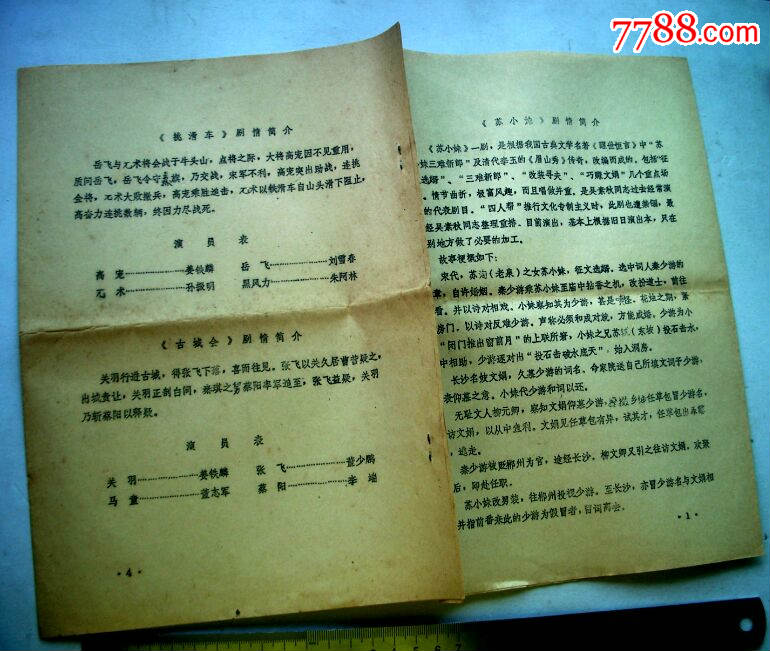 7788.com
中国收藏热线
《挑滑车》剧情简介
岳飞与兀术将会战于牛头山，点将之际，大将高宠因不见重用，
质问岳飞，岳飞令守纛旗，乃交战，宋军不利，高宠突出助战，连挑
金将，兀术大败撤兵，高宠乘胜追击，兀术以铁滑车自山头滑下阻止，
高奋力连挑数辆，终因力尽战死。
演员表
高宠 姜铁麟 岳飞 刘雪春
兀术 孙振明 黑风力 朱阿林
《古城会》剧情简介
关羽行近古城，得张飞下落，喜而往见。张飞以关久居曹营疑之，
出城责让，关羽正剖白间，秦琪之舅蔡阳率军追至，张飞益疑，关羽
乃斩蔡阳以释疑。
演员表
关羽 姜铁麟 张飞 董少鹏
马童 董志军 蔡阳 李瑞
·4·
《苏小妹》剧情简介
《苏小妹》一剧，是根据我国古典文学名著《醒世恒言》中“苏
妹三难新郎”及清代李玉的《眉山秀》传奇，改编而成的。包括“征
选婿”、“三难新郎”、“改装寻夫”、“巧赚文娟”几个重点场
。情节曲折，极富风趣，而且唱做并重，是吴素秋同志过去经常演
的代表剧目。“四人帮”推行文化专制主义时，此剧也遭禁锢，最
经吴素秋同志整理重排。目前演出，基本上根据旧日演出本，只在
别地方做了必要的加工。
故事梗概如下：
宋代，苏洵（老泉）之女苏小妹，征文选婿。选中词人秦少游的
章，自许婚姻。秦少游乘苏小妹至庙中拈香之机，改扮道士，前往
看。并以诗对相戏。小妹察知其为少游，甚是 。花烛之期，紧
房门。以诗对反难少游。声称必须和成对就，方能成婚。少游为小
“闭门推出窗前月”的上联所窘，小妹之兄苏轼（东坡）投石击水，
中相助，少游遂对出“投石击破水底天”，始入洞房。
长沙名妓文娟，久慕少游的词名，命家院送自己所填文词于少游，
表仰慕之意。小妹代少游和词以还。
无耻文人柳元卿，察知文娟仰慕少游， 乡绅任草包冒少游名，
访文娟，以从中渔利。文娟见任草包有异，试其才，任草包出乖露
，逃走。
秦少游被贬郴州为官，途经长沙。柳文卿又引之往访文娟。欢聚
后，即赴任职。
苏小妹改男装，往郴州投视少游。至长沙，亦冒少游名与文娟相
并指前番来此的少游为假冒者，
·1·